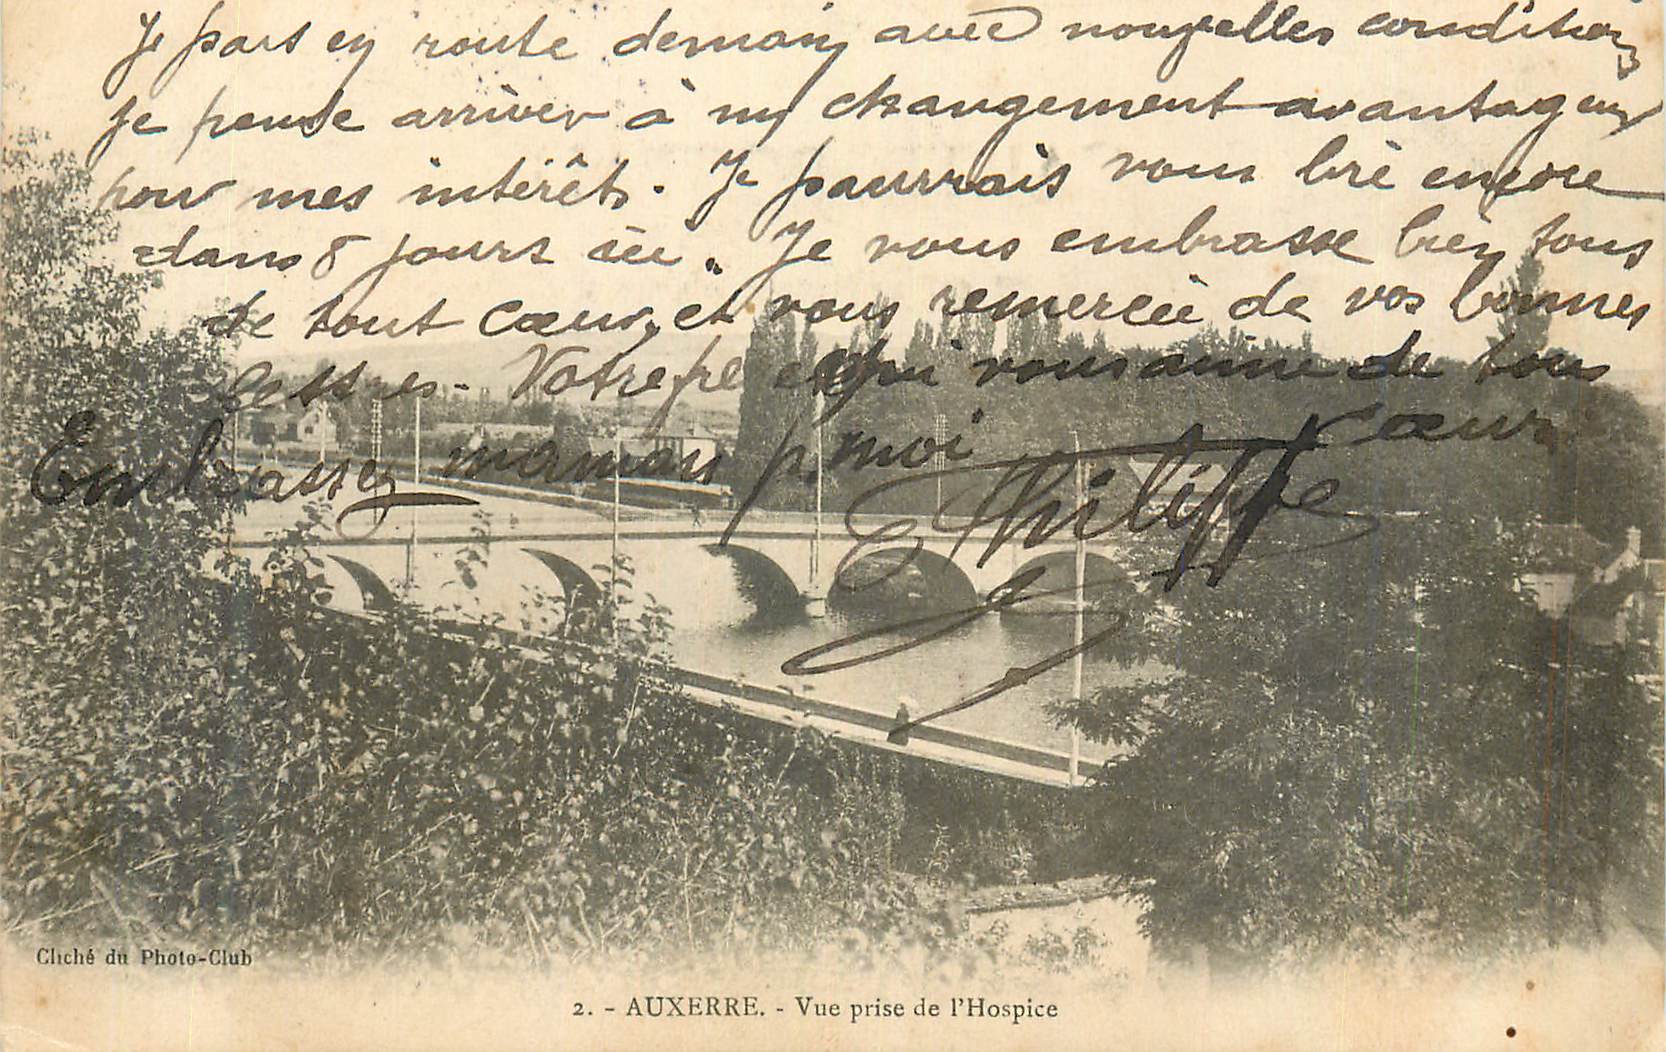 Je pars en route demain avec nouvelles conditions
Je pense arriver à un changement avantageux
pour mes intérêts. Je pourrais vous lire encore
dans 8 jours ici. Je vous embrasse bien tous
de tout cœur, et vous remercie de vos bonnes
lettres. Votre qui vous aime de tout
cœur
Embrassez maman p. moi
Philippe
Cliché du Photo-Club
2. - AUXERRE. - Vue prise de l'Hospice